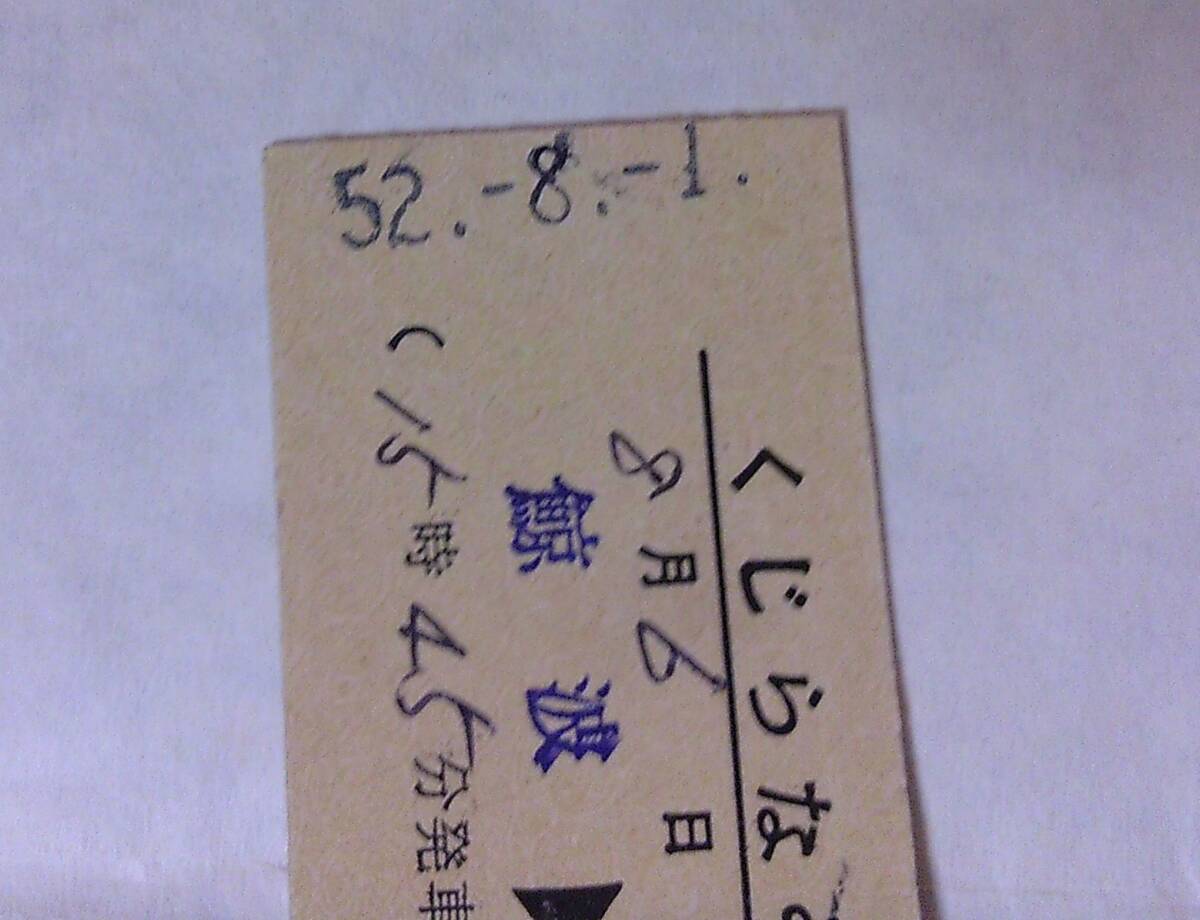 52.-8.-1.
くじらな
8月6日
鯨波
(15時45分発車